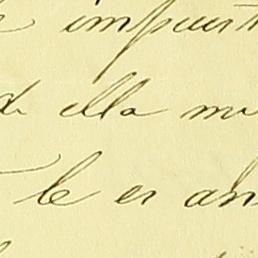 impuest
de ella mu
le es an